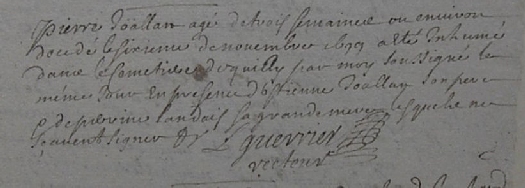 Pierre doallan agé de trois semaines ou environ
decedé le sixieme de novembre 1699 a este Inhumé
dans le semetiere d'oquilly par moy soussigné le
même Jour En presence d'Estienne doallan son pere
et de perrine landais sa grande mere lesquels ne
sçavent signer De Le guerrier
recteur